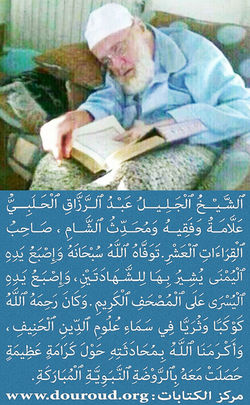 ٱلشَّيْخُ ٱلْجَلِيلُ عَبْدُ ٱلرَّزَّاقِ ٱلْحَلَبِيُّ
عَلَّامَةُ وَفَقِيهُ وَمُحَدِّثُ ٱلشَّامِ ، صَاحِبُ
ٱلْقِرَاءَاتِ ٱلْعَشْرِ. تَوَفَّاهُ ٱللَّهُ سُبْحَانَهُ وَإِصْبَعُ يَدِهِ
ٱلْيُمْنَى يُشِيرُ بِهَا لِلشَّهَادَتَيْنِ، وَإِصْبَعُ يَدِهِ
ٱلْيُسْرَى عَلَى ٱلْمُصْحَفِ ٱلْكَرِيمِ . وَكَانَ رَحِمَهُ ٱللَّهُ
كَوْكَبًا وَثُرَيَّا فِي سَمَاءِ عُلُومِ ٱلدِّينِ ٱلْحَنِيفِ ،
وَأَكْرَمَنَا ٱللَّهُ بِمُحَادَثَتِهِ حَوْلَ كَرَامَةٍ عَظِيمَةٍ
حَصَلَتْ مَعَهُ بِٱلرَّوْضَةِ ٱلنَّبَوِيَّةِ ٱلْمُبَارَكَةِ.
مركز الكتابات : www.douroud.org